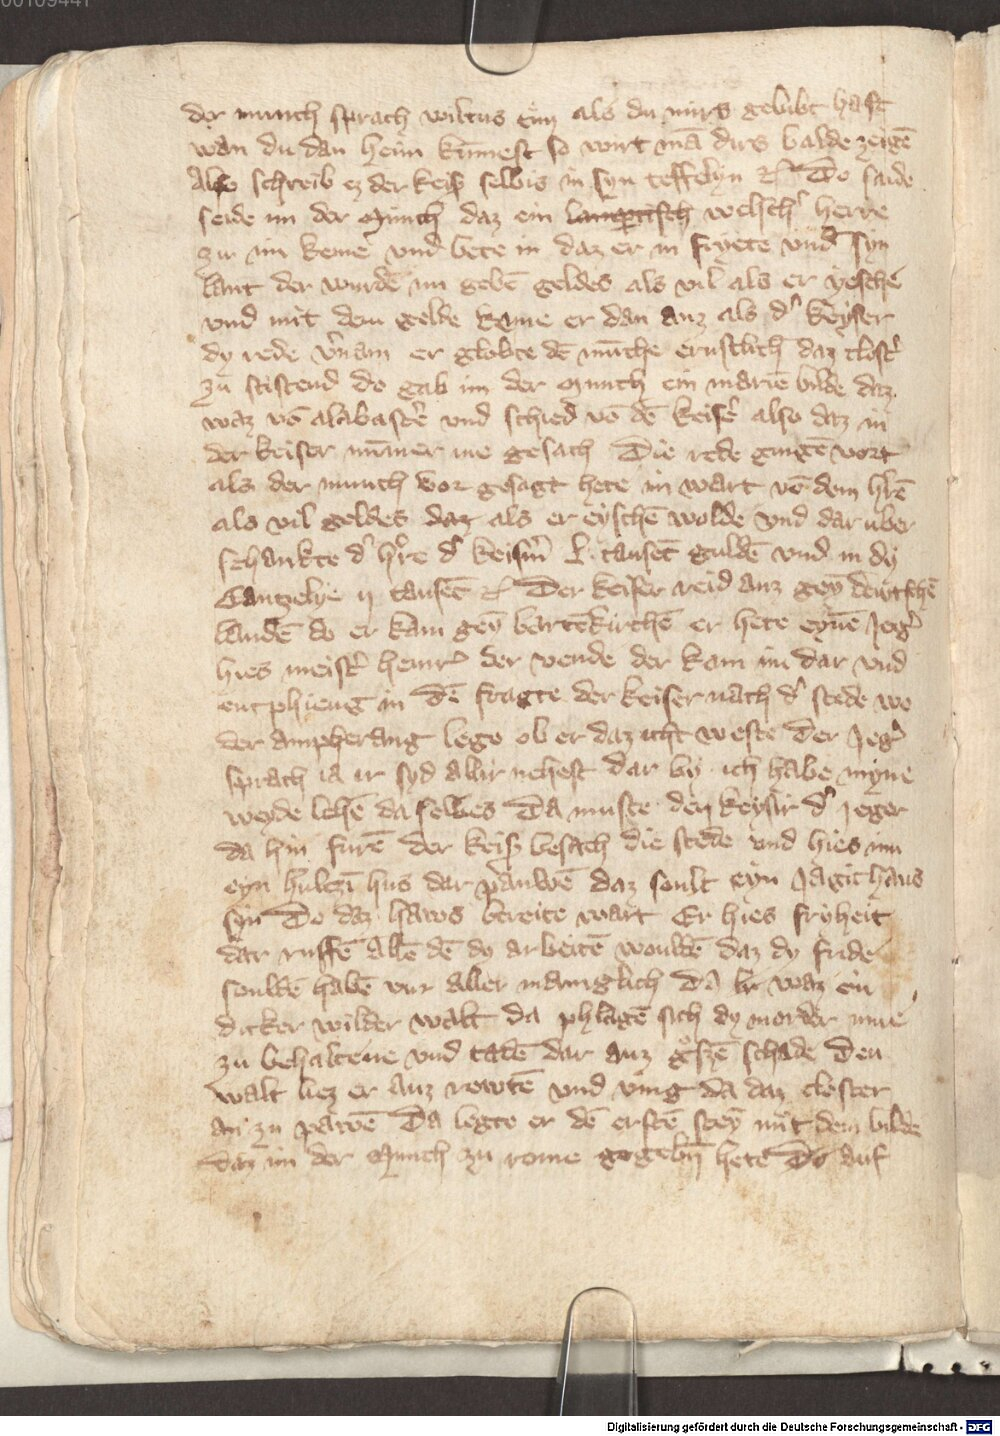 der munch sprach wiltus tun als du mirs gelubt hast
wan du dan heim kumest so wirt mā dirs balde zeigē
Also schreib ez der keisʳ selbis in syn teffelyn Do saide
seide im der Munch daz ein lampartisch welschʳ herre
zu im keme vnd bete in daz er in fryete vnd syn
lant der wurdē im gebē geldes als vil als er yesche
vnd mit dem gelde keme er dan auz als dʳ keyser
dy rede v̄nam er globte dē mūche ernstlich daz clostʳ
zu stiftend do gab im der Munch ein mariē bilde daz
waz vō alabastʳ vnd schied vō dē keisʳ also daz in
der keiser nūmer me gesach Die rede gingē vort
als der munch vor gesagt hete im wart vō dem hʳrē
als vil geldes daz als er eyschē wolde vnd dar uber
schankte dʳ hʳre dʳ keisʳin L tausēt guldē vnd in dy
Cantzelye ij tausēt Der keiser reid auz gey deutschē
landē do er kam gey bartēkirchē er hete eynē Jegʳ
hies meistʳ heinrʳ der vende der kam im dar vnd
entphieng in dē fragte der keiser nach dʳ stede wo
der ampherang lege ob er daz icht weste Der Jegʳ
sprach ia ir syd allir nehest dar by ich habe myne
weyde lehē da selbes Da muste den keysir dʳ jeger
da hin furē der keisʳ besach die stede vnd hies im
eyn hulczī hus dar pauwē daz solt eyn Jagithaus
syn Do daz haws bereite wart Er hies fryheit
dar ruffē allē dē dy arbeitē wouldē daz dy fride
souldē habē vur aller manglich Da waz ein
dicker wilder walt da phlagē sich dy morder inne
zu behaltene vnd tadē dar auz gʳoszē schade Den
walt liez er auz rewtē vnd ving da daz closter
an zu pawē Da legte er dē erstē stey mit dem bilde
daz im der Munch zu rome gegebn hete Do auf
Digitalisierung gefördert durch die Deutsche Forschungsgemeinschaft - DFG